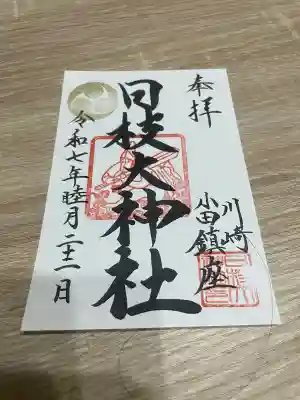 奉拝
川崎
小田鎮座
日枝大神社
令和七年睦月二十一日